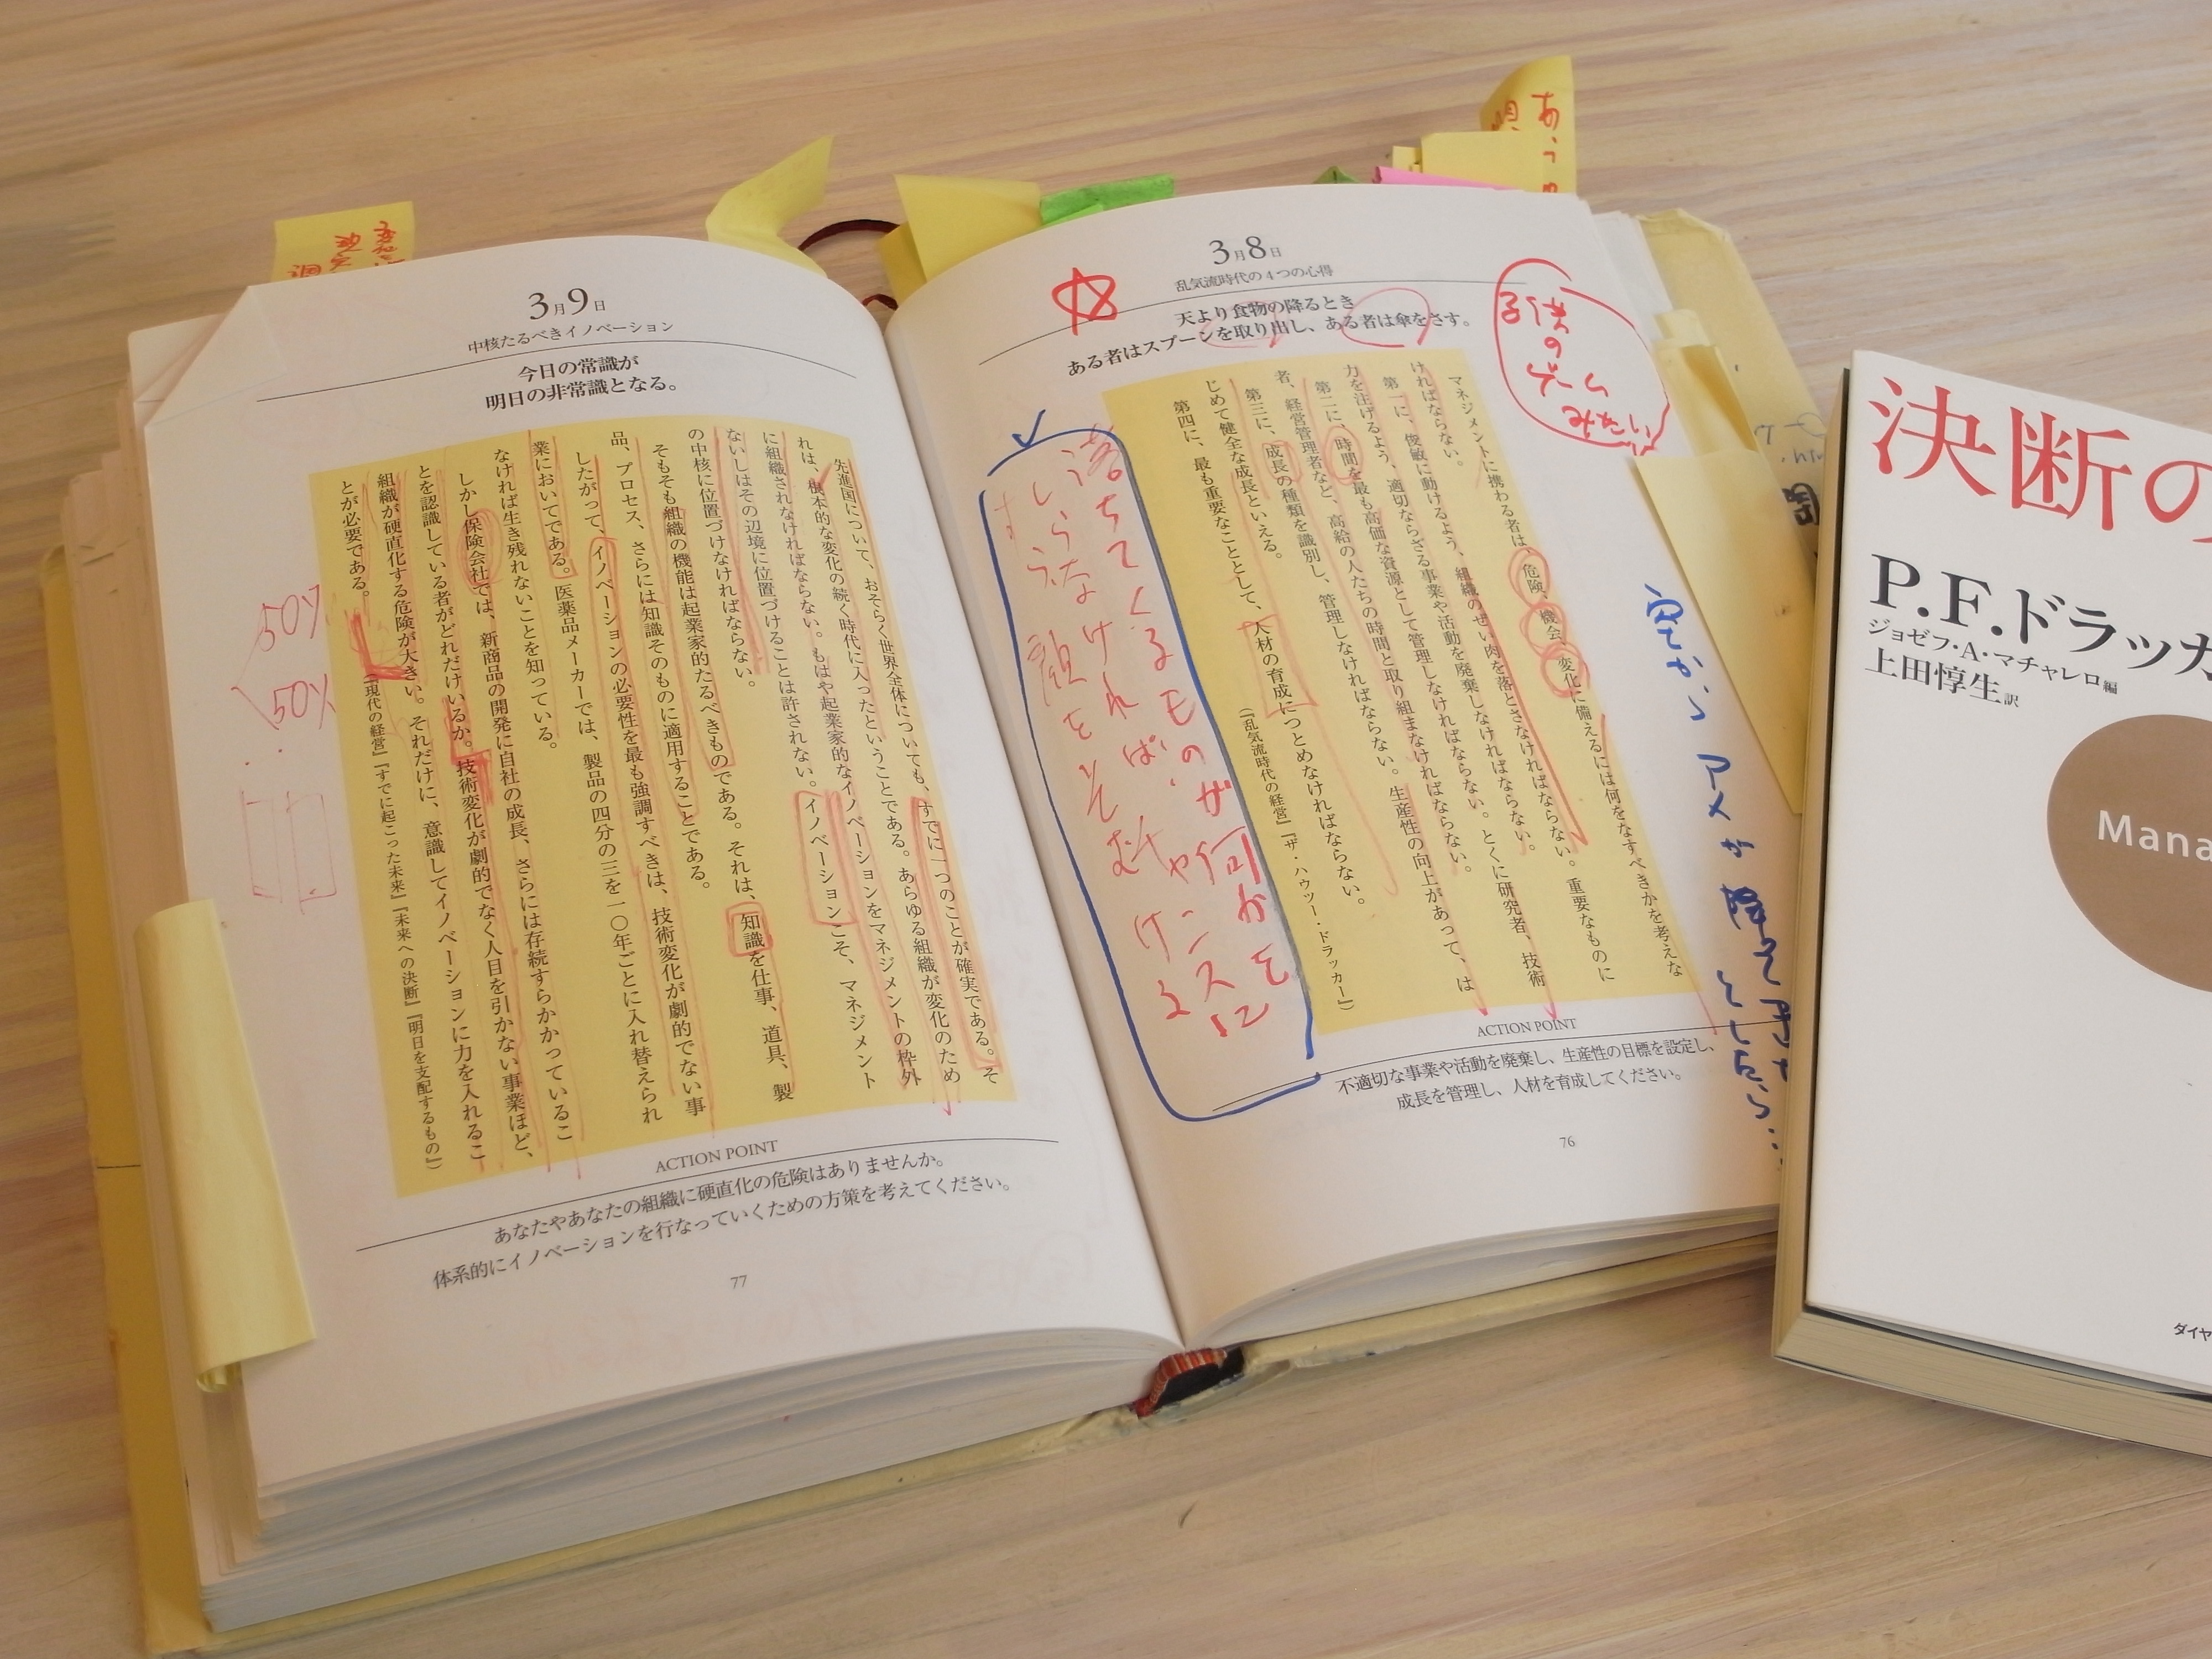 3月8日
乱気流時代の4つの心得
天より食物の降るとき
ある者はスプーンを取り出し、ある者は傘をさす。
子供の
ゲーム
みたい
マネジメントに携わる者は、危険、機会、変化に備えるには何をなすべきかを考えな
ければならない。
第一に、俊敏に動けるよう、組織のぜい肉を落とさなければならない。重要なものに
力を注げるよう、適切ならざる事業や活動を廃棄しなければならない。
第二に、時間を最も高価な資源として管理しなければならない。とくに研究者、技術
者、経営管理者など、高給の人たちの時間と取り組まなければならない。生産性の向上があって、は
第三に、成長の種類を識別し、管理しなければならない。
じめて健全な成長といえる。
第四に、最も重要なこととして、人材の育成につとめなければならない。
(『乱気流時代の経営』『ザ・ハウツー・ドラッカー』)
落ちてくるものが何かを
しらなければ、チャンスに
顔をそむける
空から アメが 降って来た
としたら…
ACTION POINT
不適切な事業や活動を廃棄し、生産性の目標を設定し、
成長を管理し、人材を育成してください。
76
3月9日
中核たるべきイノベーション
今日の常識が
明日の非常識となる。
先進国について、おそらく世界全体についても、すでに一つのことが確実である。そ
れは、根本的な変化の続く時代に入ったということである。あらゆる組織が変化のため
に組織されなければならない。もはや起業家的なイノベーションをマネジメントの枠外
ないしはその辺境に位置づけることは許されない。イノベーションこそ、マネジメント
の中核に位置づけなければならない。
そもそも組織の機能は起業家的たるべきものである。それは、知識を仕事、道具、製
品、プロセス、さらには知識そのものに適用することである。
したがって、イノベーションの必要性を最も強調すべきは、技術変化が劇的でない事
業においてである。医薬品メーカーでは、製品の四分の三を一〇年ごとに入れ替えられ
なければ生き残れないことを知っている。
しかし保険会社では、新商品の開発に自社の成長、さらには存続すらかかっているこ
とを認識している者がどれだけいるか。技術変化が劇的でなく人目を引かない事業ほど、
組織が硬直化する危険が大きい。それだけに、意識してイノベーションに力を入れるこ
とが必要である。
(『現代の経営』『すでに起こった未来』『未来への決断』『明日を支配するもの』)
50%
50%
ACTION POINT
あなたやあなたの組織に硬直化の危険はありませんか。
体系的にイノベーションを行なっていくための方策を考えてください。
77
決断の
P.F.ドラッカ
ジョゼフ・A・マチャレロ編
上田惇生訳
Mana
ダイヤ